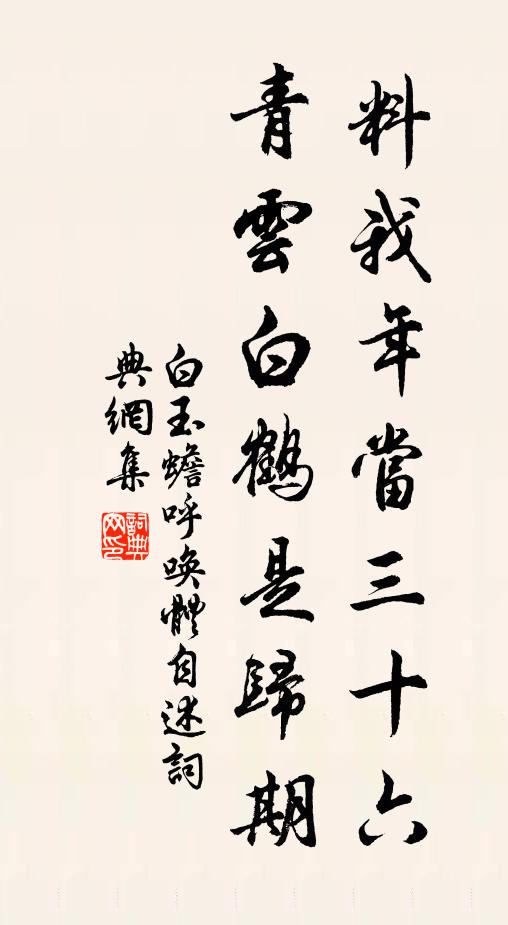 料我年當三十六
青雲白鶴是歸期
白玉蟾呼喚體自述詞
典網集
詞典
网印